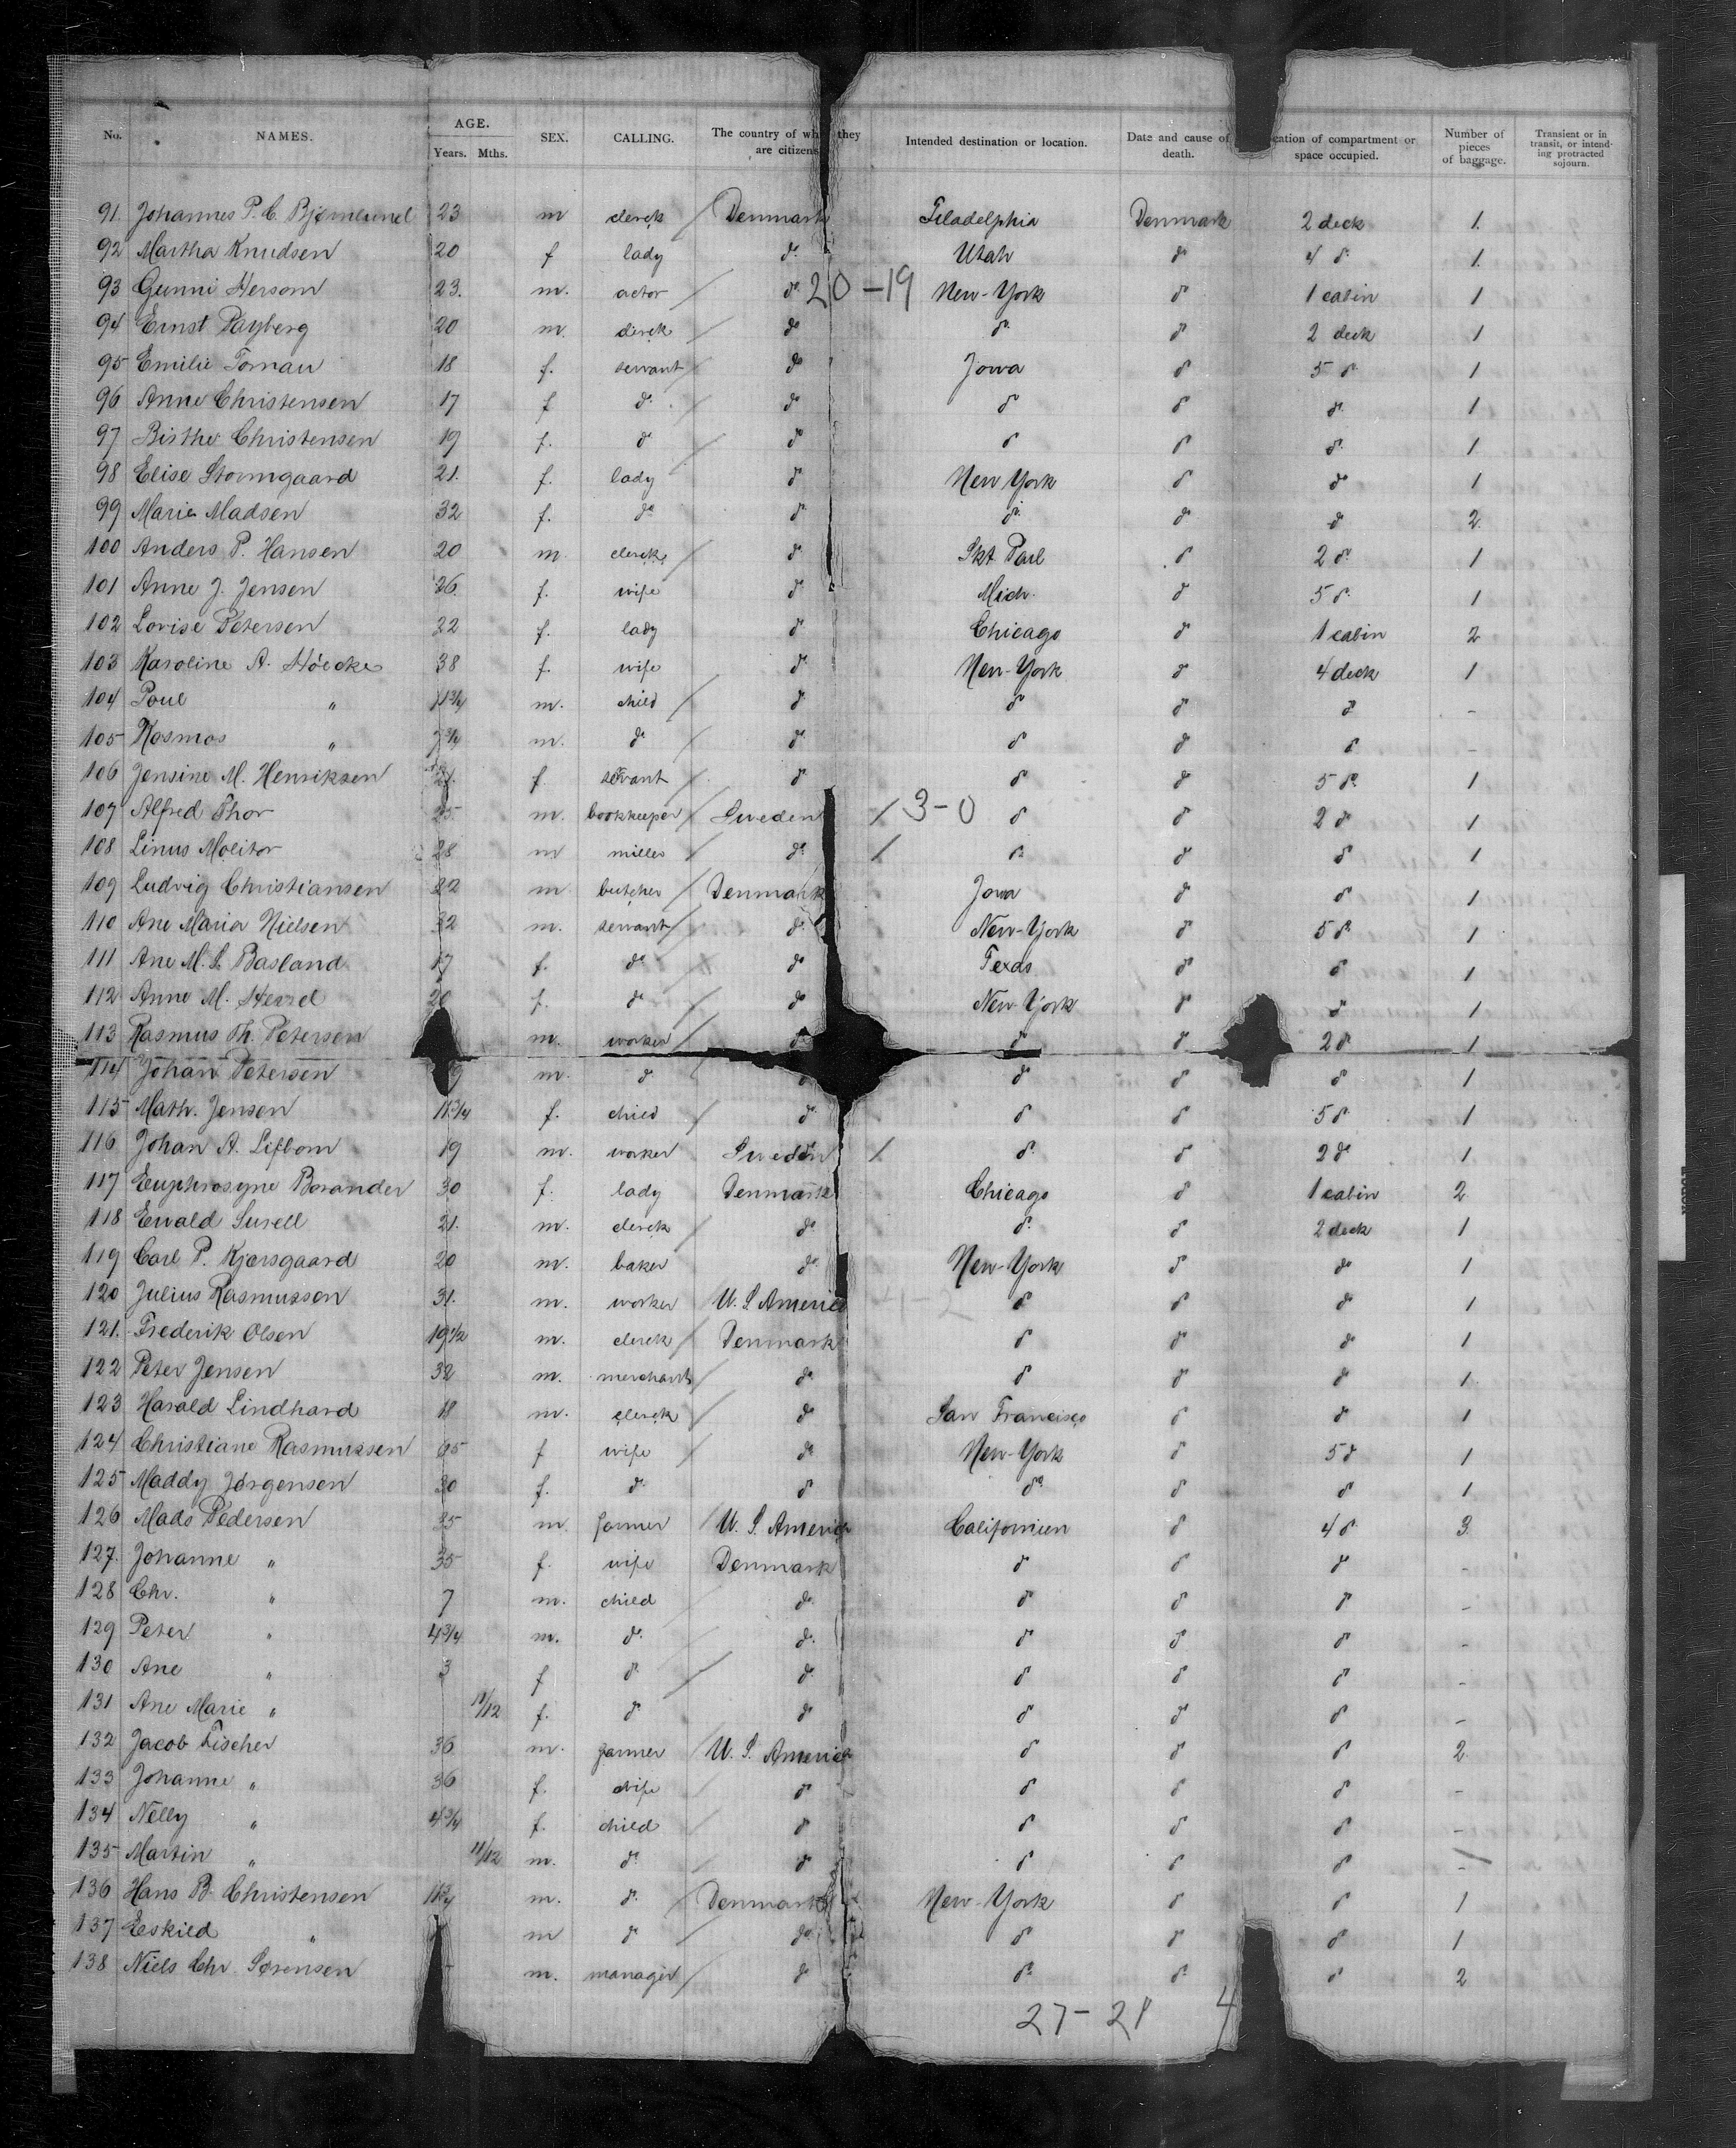 No. NAMES. AGE. Years. Mths. SEX. CALLING. The country of wh they are citizens Intended destination or location. Date and cause of death. cation of compartment or space occupied. Number of pieces of baggage. Transient or in transit, or intending protracted sojourn.
91. Johannes P. C. Bjørnlund 23 m clerck / Denmark Filadelphia Denmark 2 deck 1.
92 Martha Knudsen 20 f lady do Utah do 4 do 1.
93 Gunni Hersom 23. m. actor / do 20-19 New-York do 1 cabin 1
94 Ernst Payberg 20 m. clerck / do do do 2 deck 1
95 Emilie Tornau 18 f. servant / do Jowa do 5 do 1
96 Anne Christensen 17 f do / do do do do 1
97 Birthe Christensen 19 f. do / do do do do 1
98 Elise Stormgaard 21. f. lady do New York do do 1
99 Marie Madsen 32 f. do do do do do 2.
100 Anders P. Hansen 20 m. clerck do Skt Paul do 2 do 1
101 Anne J. Jensen 26. f. wife do Mich. do 5 do 1
102 Lovise Petersen 22 f. lady do Chicago do 1 cabin 2
103 Karoline A. Höecke 38 f. wife do New-York do 4 deck 1
104 Poul " 11 3/4 m. child / do do do do -
105 Kosmos " 7 3/4 m. do / do do do do -
106 Jensine M. Henriksen 21. f servant do do do 5 do 1
107 Alfred Thor 25 m. bookkeeper / Sweden / 3-0 do do 2 do 1
108 Linus Molitor 28 m miller / do / do do do 1
109 Ludvig Christiansen 22 m butcher / Denmark Jowa do do 1
110 Ane Maria Nielsen 32 m. servant / do New-York do 5 do 1
111 Ane M. L. Basland 17 f. do / do Texas do do 1
112 Anne M. 20 f. do / do New-York do do 1
113 Rasmus Th. Petersen m. worker / do do do 2 do 1
114 Johan Petersen 9 m. do do do do 1
115 Math. Jensen 11 3/4 f. child / do do do 5 do 1
116 Johan A. Lifbom 19 m. worker Sweden / do do 2 do 1
117 Euphrosyne Borander 30 f. lady Denmark Chicago do 1 cabin 2
118 Ewald Surell 21. m. clerck / do do do 2 deck 1
119 Carl P. Kjærsgaard 20 m. baker do New-York do do 1
120 Julius Rasmussen 31. m. worker U. S. America do do do 1
121. Frederik Olsen 19 1/2 m. clerck / Denmark do do do 1
122 Peter Jensen 32 m. merchant / do do do do 1
123 Harald Lindhard 18 m. clerck / do San Francisço do do 1
124 Christiane Rasmussen 65 f wife / do New-York do 5 do 1
125 Maddy Jørgensen 30 f. do do do do do 1
126 Mads Pedersen 35 m. farmer / U. S. America Californien do 4 do 3.
127. Johanne " 35 f. wife Denmark do do do -
128 Chr. " 7 m. child do do do do -
129 Peter " 4 3/4 m. do do do do do -
130 Ane " 3 f do / do do do do -
131 Ane Marie " 11/12 f. do do do do do -
132 Jacob Fischer 36 m. farmer / U. S. America do do do 2.
133 Johanne " 36 f. wife / do do do do -
134 Nelly " 4 3/4 f. child / do do do do -
135 Martin " 11/12 m. do / do do do do -
136 Hans B. Christensen 11 3/4 m. do / Denmark New-York do do 1
137 Eeskild " m do / do do do do 1
138 Niels Chr. Sørensen m. manager / do do do do 2
27-21 4